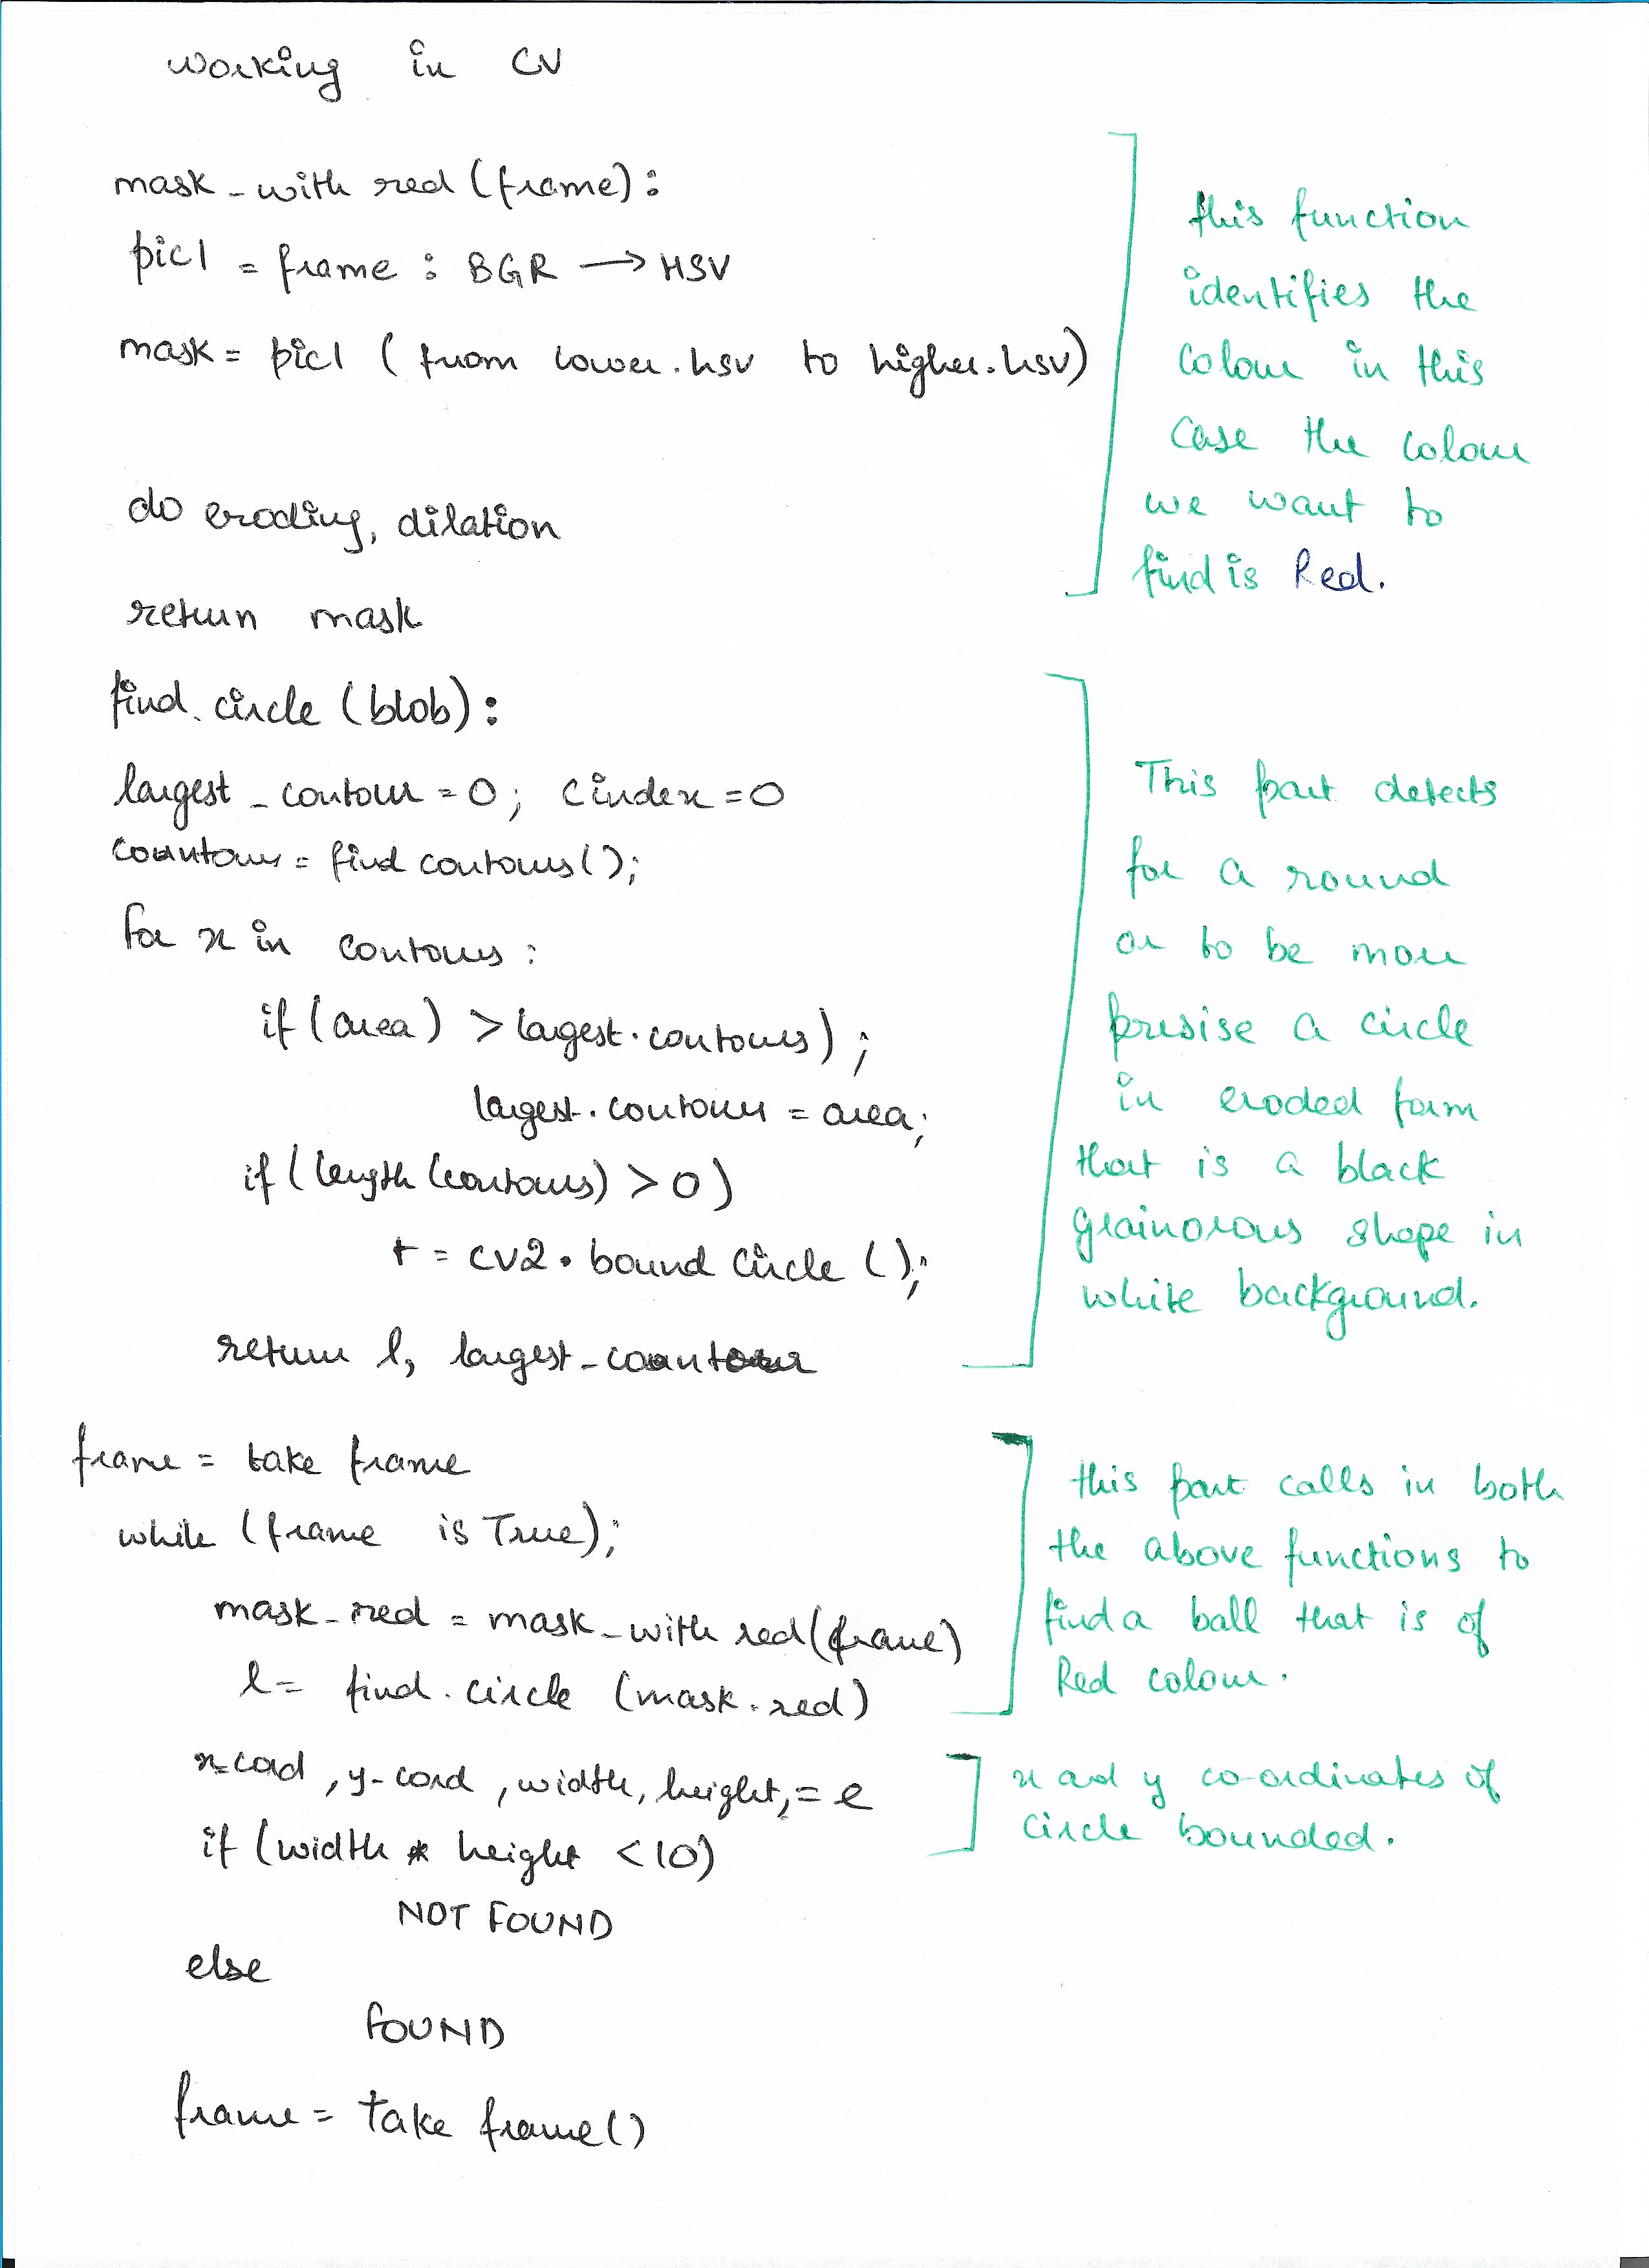 working in CV
mask_with red (frame):
pic1 = frame : BGR → HSV
mask = pic1 ( from lower.hsv to higher.hsv)
do eroding, dilation
return mask
this function
identifies the
colour in this
case the colour
we want to
find is Red.
find.circle (blob):
largest_contour = 0; cindex = 0
countour = find contours();
for x in contours :
if (area) > largest.contours) ;
largest.contour = area;
if (length (contours) > 0)
r = cv2.bound circle ();
return l, largest_contour
This part detects
for a round
or to be more
presise a circle
in eroded form
that is a black
grainorous shape in
white background.
frame = take frame
while (frame is True);
mask_red = mask_with red(frame)
l = find.circle (mask.red)
this part calls in both
the above functions to
find a ball that is of
Red colour.
x-cord , y-cord , width, height, = l
if (width * height < 10)
NOT FOUND
else
FOUND
frame = take frame()
x ad y co-ordinates of
circle bounded.